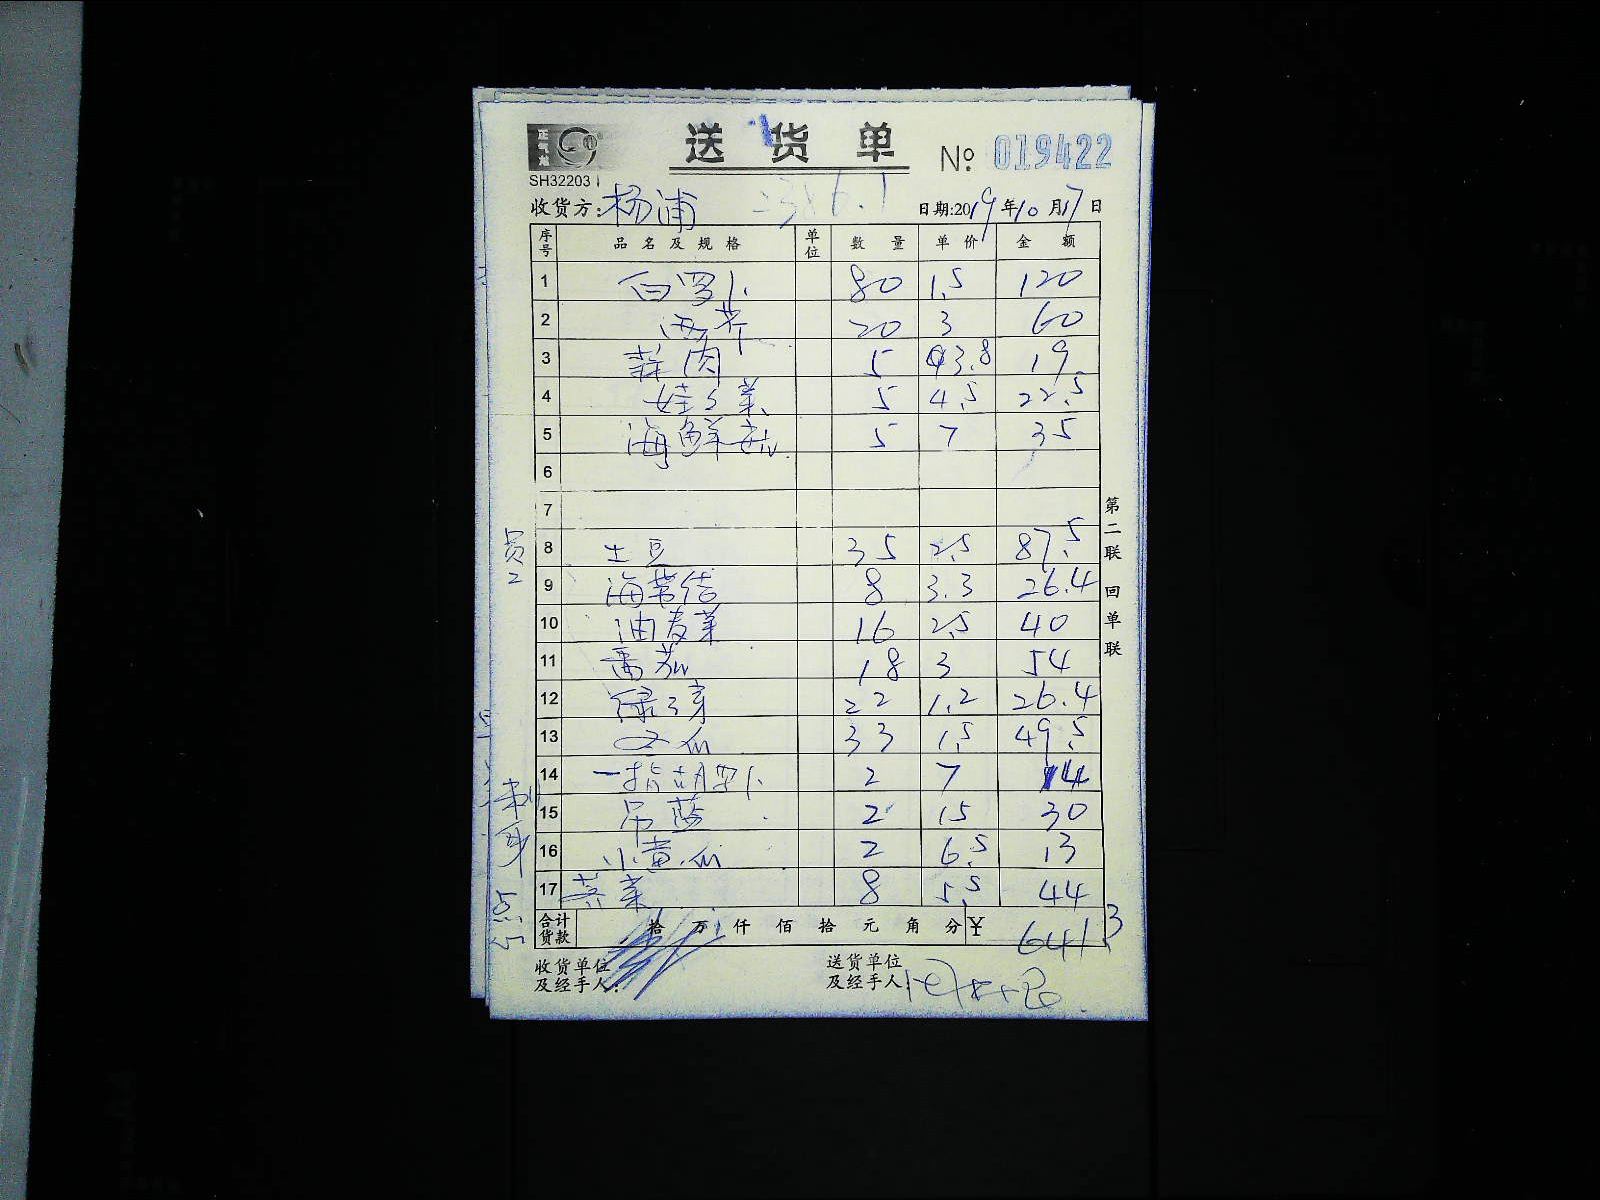 正气龙
送货单 No: 019422
SH32203
收货方:杨浦 2386.1 日期:2019年10月17日
序号 品名及规格 单位 数量 单价 金额
1 白罗卜 80 1.5 120
2 西芹 20 3 60
3 蒜肉 5 3.8 19
4 娃娃菜 5 4.5 22.5
5 海鲜菇 5 7 35
6
7
8 土豆 35 2.5 87.5
9 海带结 8 3.3 26.4
10 油麦菜 16 2.5 40
11 番茄 18 3 54
12 绿豆芽 22 1.2 26.4
13 冬瓜 33 1.5 49.5
14 一指胡罗卜 2 7 14
15 吊蓝 2 15 30
16 小黄瓜 2 6.5 13
17 菜 8 5.5 44
合计货款 拾万仟佰拾元角分 ¥ 641.3
收货单位及经手人:
送货单位及经手人:
第二联 回单联
员工
点心